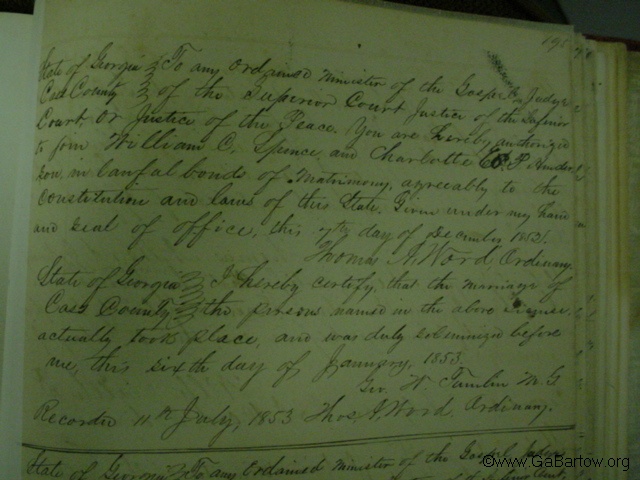 195
State of Georgia } To any ordained minister of the Gospel Judge
Cass County } of the Superior Court Justice of the Inferior
Court, or Justice of the Peace. You are hereby authorized
to join William C. Spence and Charlotte E. P. Ander
son, in lawful bonds of Matrimony, agreeably to the
Constitution and laws of this State. Given under my hand
and seal of office, this 7th day of December 1852.
Thomas A. Word Ordinary.
State of Georgia } I hereby certify, that the marriage of
Cass County } the persons named in the above license,
actually took place, and was duly solemnized before
me, this sixth day of January, 1853.
Geo. W. Tumlin M. G.
Recorded 11th July, 1853 Thos. A. Word Ordinary.
State of Georgia } To any ordained minister of the Gospel, Judge
©www.GaBartow.org